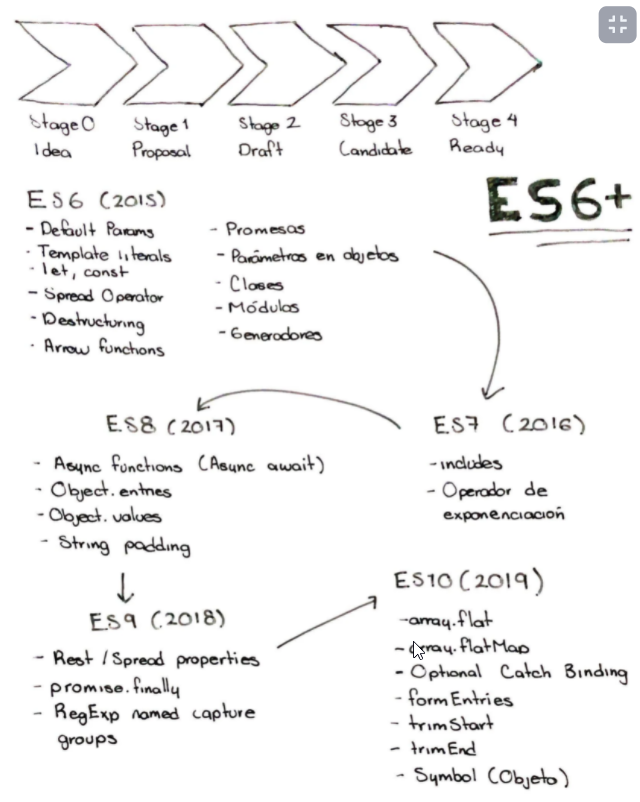 Stage 0
Idea
Stage 1
Proposal
Stage 2
Draft
Stage 3
Candidate
Stage 4
Ready
ES6+
ES6 (2015)
- Default Params
- Template literals
- let, const
- Spread Operator
- Destructuring
- Arrow functions
- Promesas
- Parámetros en objetos
- Clases
- Módulos
- Generadores
ES7 (2016)
- includes
- Operador de
exponenciación
ES8 (2017)
- Async functions (Async await)
- Object.entries
- Object.values
- String padding
ES9 (2018)
- Rest / Spread properties
- promise.finally
- RegExp named capture
groups
ES10 (2019)
- array.flat
- array.flatMap
- Optional Catch Binding
- formEntries
- trimStart
- trimEnd
- Symbol (Objeto)